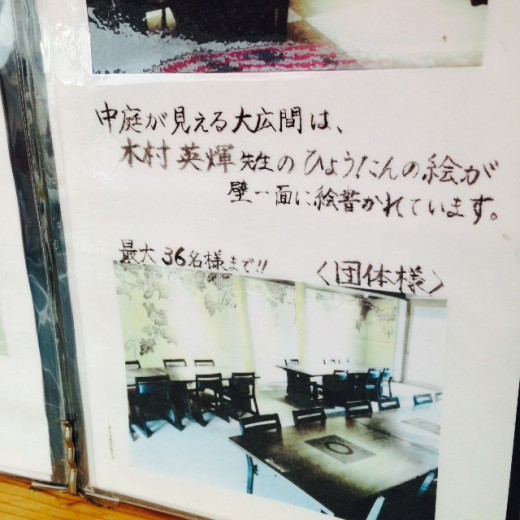 中庭が見える大広間は、
木村英輝先生のひょうたんの絵が
壁一面に絵書かれています。
最大36名様まで!!
〈団体様〉